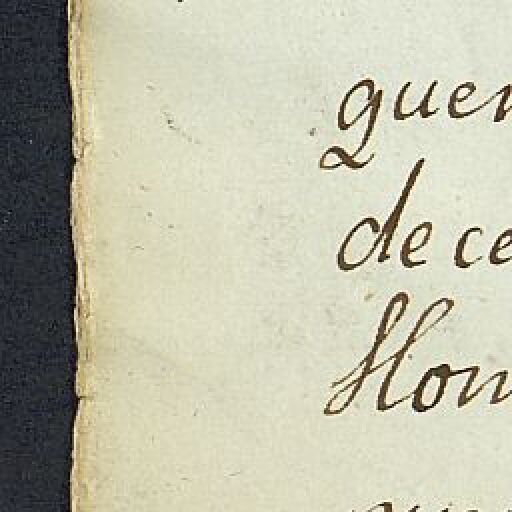 quer
de ce
Hom